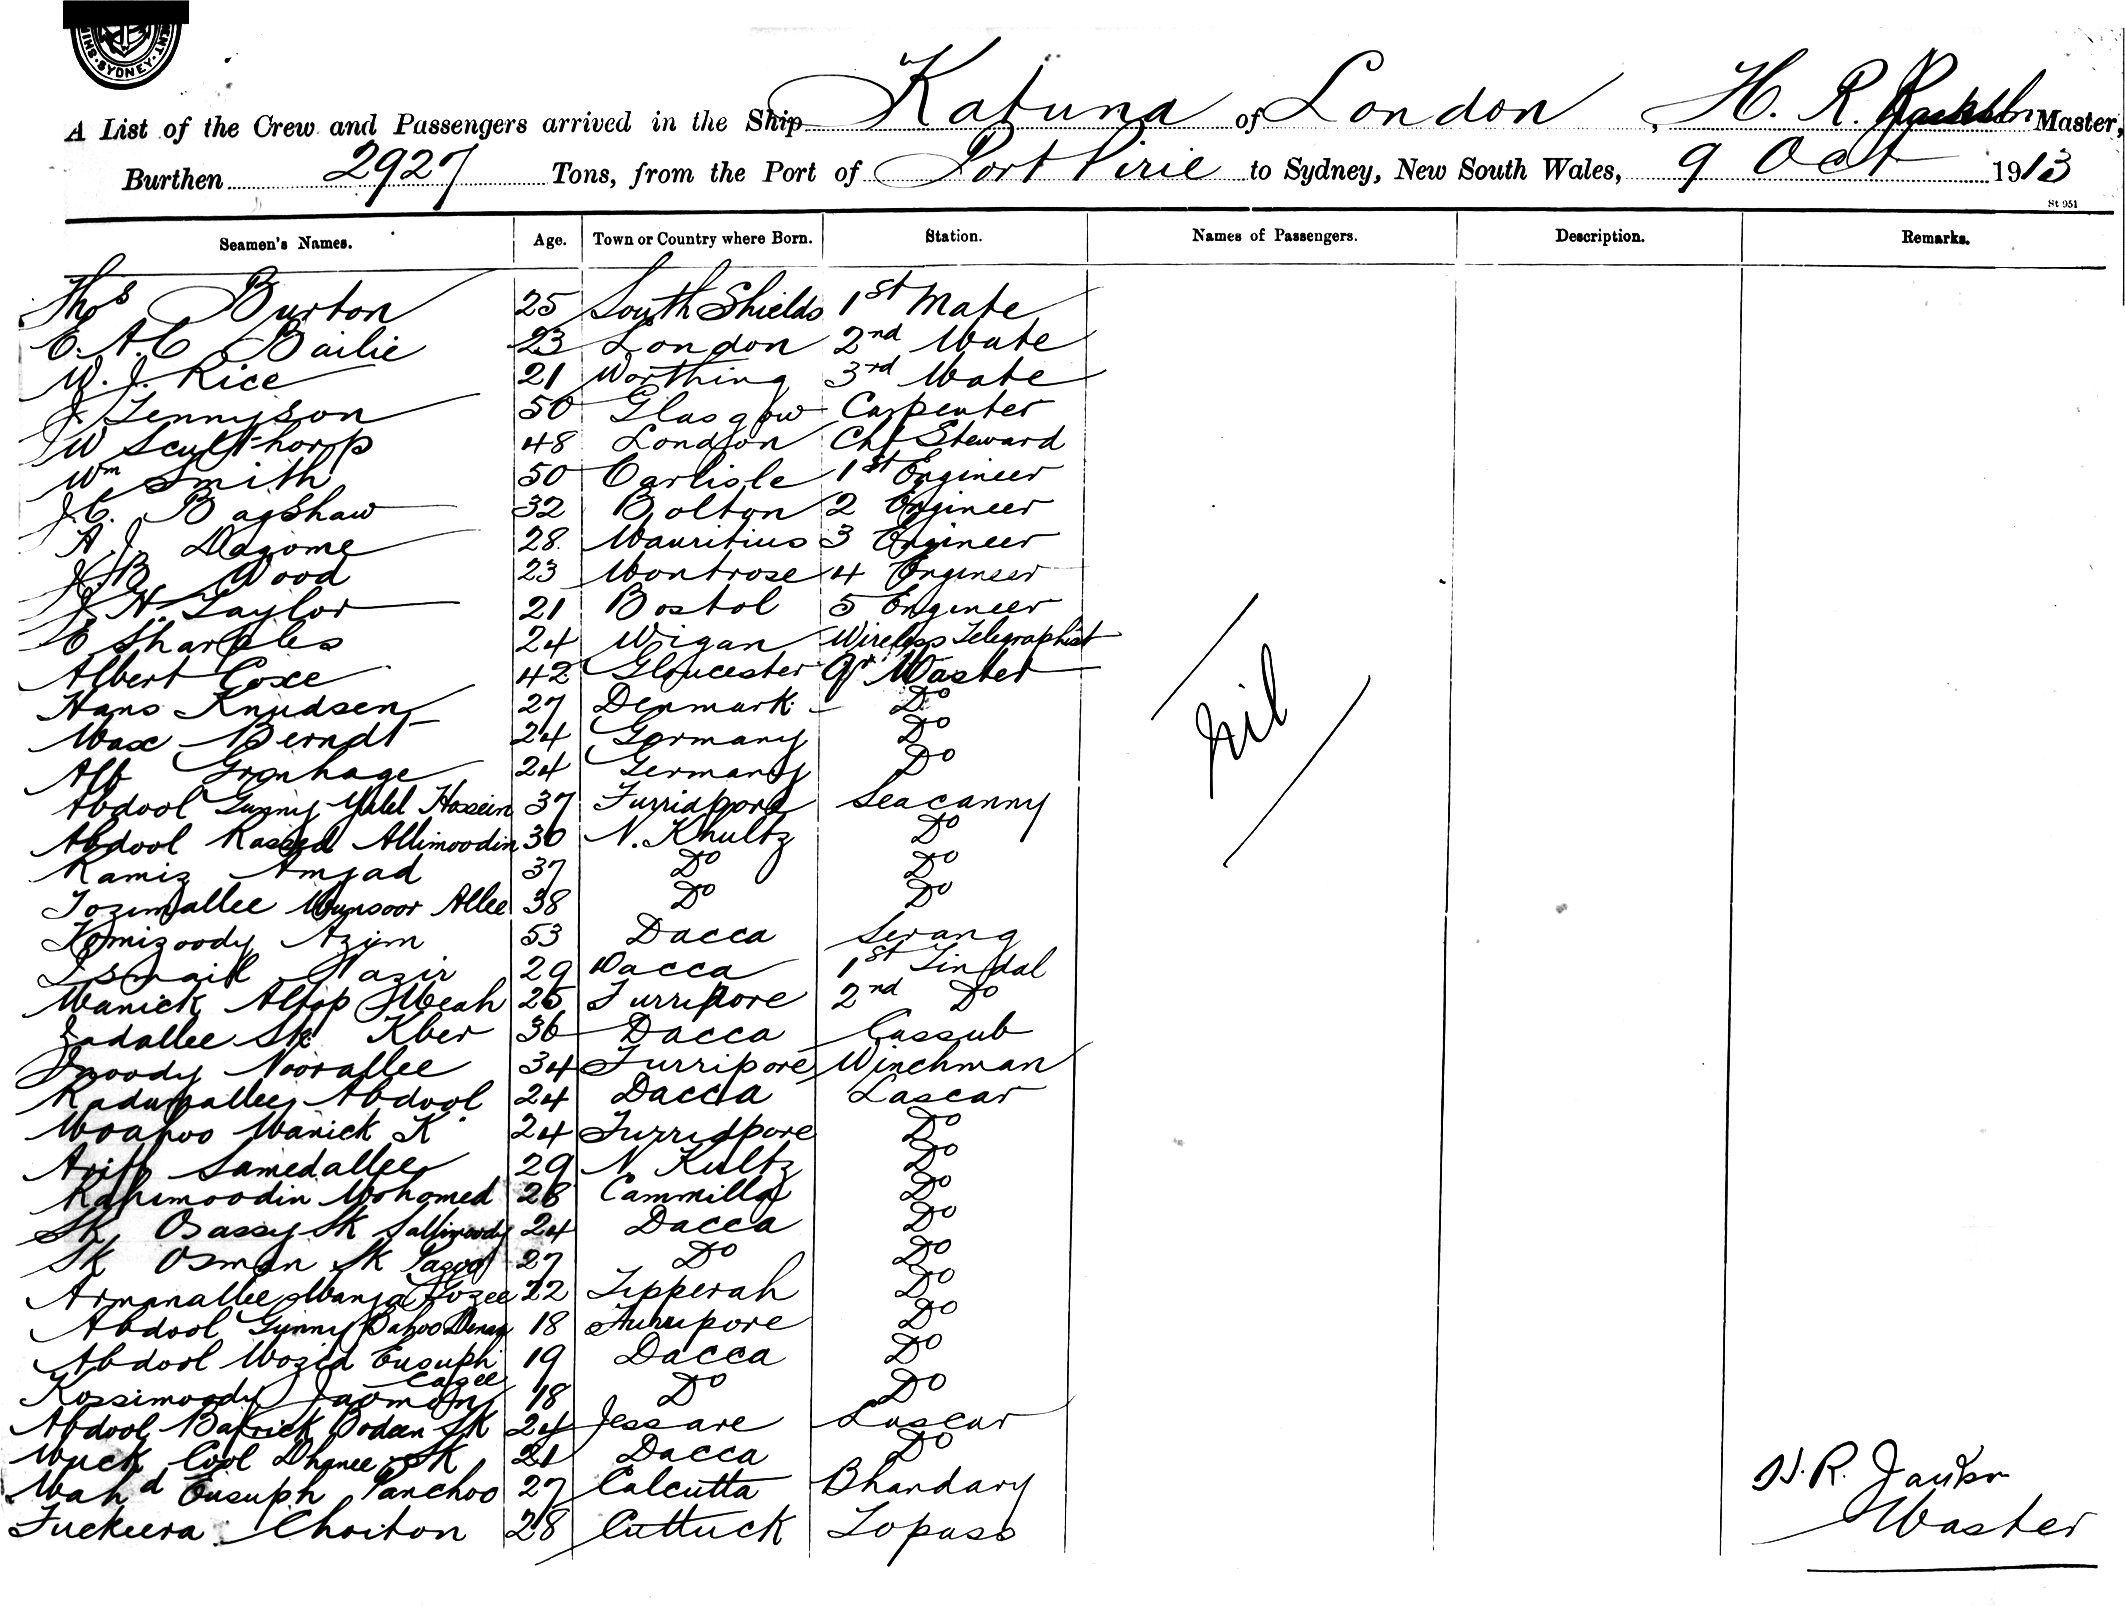 SYDNEY
A List of the Crew and Passengers arrived in the Ship Katuna of London, H. R. Master,
Burthen 2927 Tons, from the Port of Port Pirie to Sydney, New South Wales, 9 Oct 1913
St 951
Seamen's Names. Age. Town or Country where Born. Station. Names of Passengers. Description. Remarks.
Thos Burton 25 South Shields 1st Mate
C. A. C Bailie 23 London 2nd Mate
W. J. Rice 21 Worthing 3rd Mate
J Tennyson 50 Glasgow Carpenter
W Sculthorp 48 London Chf Steward
Wm Smith 50 Carlisle 1st Engineer
J. C. Bagshaw 32 Bolton 2 Engineer
A. J. Dagome 28 Mauritius 3 Engineer
J. B. Wood 23 Montrose 4 Engineer
J. N. Taylor 21 Bostol 5 Engineer
E Sharples 24 Wigan Wireless Telegraphist
Albert Coxe 42 Gloucester Qr Master
Hans Knudsen 27 Denmark Do
Max Berndt 24 Germany Do
nil
Alf Gronhage 24 Germany Do
Abdool Gunny Hossein 37 Furridpore Seacanny
Abdool Allimoodin 30 N. Khultz Do
Kamiz Amjad 37 Do Do
Tozimallee Munsoor Allee 38 Do Do
Komizoody Azim 53 Dacca Serang
Ismail Nazir 29 Dacca 1st Tindal
Manick Meah 25 Furripore 2nd Do
Sadallee Sk Kber 36 Dacca Cassub
Noorallee 34 Furripore Winchman
Abdool 24 Dacca Lascar
Moahoo Manick K 24 Furridpore Do
Ariff Samedallee 29 N. Kultz Do
Rahimoodin Mohomed 28 Cammilla Do
Sk Osassy Sk Sallimoody 24 Dacca Do
Sk Osman Sk 27 Do Do
Armanallee Gozee 22 Tipperah Do
Abdool Gunny 18 Furripore Do
Abdool Wozid Eusuph 19 Dacca Do
Cagee
Kossimoody 18 Do Do
Abdool Barrick Bodan Sk 24 Jessare Lascar
Muck Cool Dhanee Sk 21 Dacca Do
Mahd Eusuph Panchoo 27 Calcutta Bhandary
H. R.
Fuckeera Choiton 28 Cuttuck Topass
Master